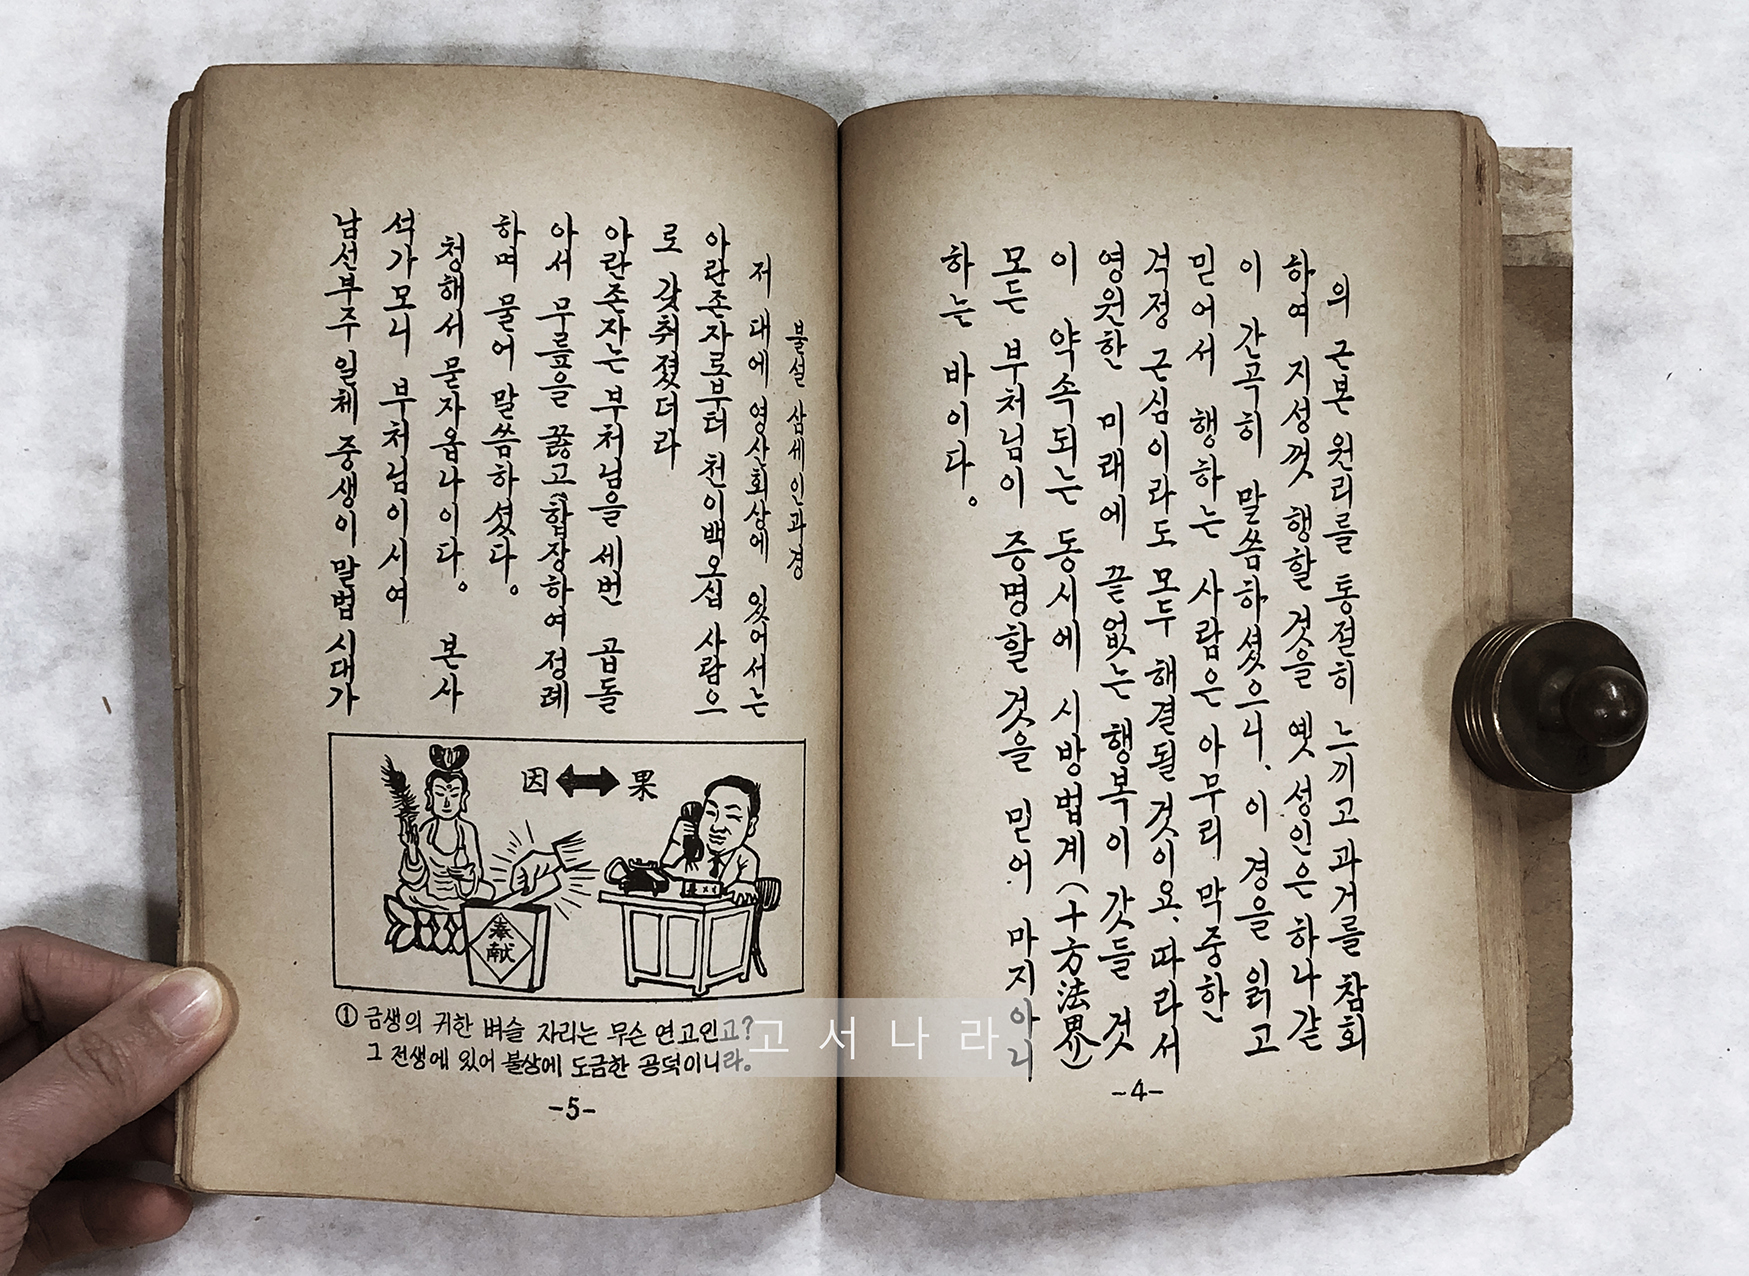 의 근본 원리를 통절히 느끼고 과거를 참회
하여 지성껏 행할 것을 옛 성인은 하나 같
이 간곡히 말씀하셨으니, 이 경을 읽고
믿어서 행하는 사람은 아무리 막중한
걱정 근심이라도 모두 해결될 것이요, 따라서
영원한 미래에 끝없는 행복이 갓들 것
이 약속되는 동시에 시방법계(十方法界)
모든 부처님이 증명할 것을 믿어 마지아니
하는 바이다。
-4-
불설 삼세인과경
저 대에 영산회상에 있어서는
아란존자로부터 천이백오십 사람으
로 갖취졌더라
아란존자는 부처님을 세번 곱돌
아서 무릎을 꿇고 합장하여 정례
하며 물어 말씀하셨다。
청해서 묻자옵나이다。 본사
석가모니 부처님이시여
남선부주 일체 중생이 말법 시대가
因 果
奉
献
① 금생의 귀한 벼슬 자리는 무슨 연고인고?
그 전생에 있어 불상에 도금한 공덕이니라.
-5-
고서나라